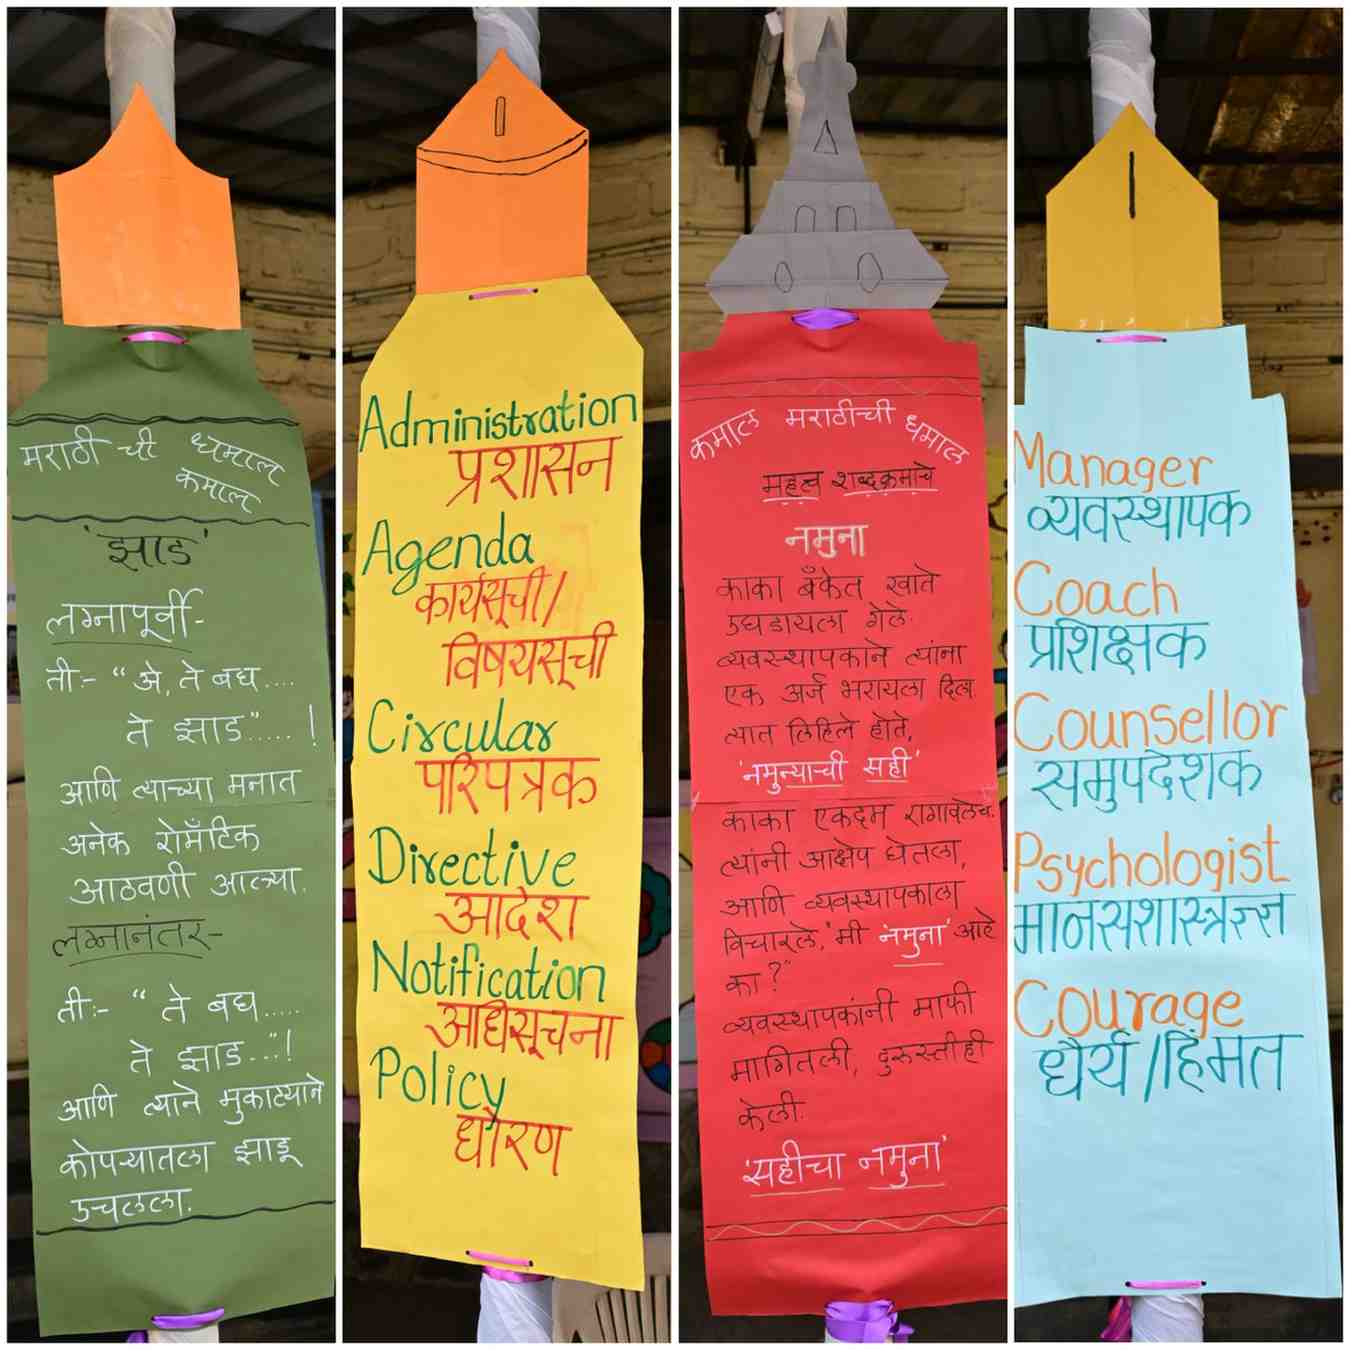 मराठी ची धमाल
कमाल
'झाड'
लग्नापूर्वी-
ती:- "अे, ते बघ....
ते झाड".....!
आणि त्याच्या मनात
अनेक रोमँटिक
आठवणी आल्या.
लग्नानंतर-
ती:- "ते बघ.....
ते झाड..."!
आणि त्याने मुकाट्याने
कोपऱ्यातला झाडू
उचलला.
Administration
प्रशासन
Agenda
कार्यसूची/
विषयसूची
Circular
परिपत्रक
Directive
आदेश
Notification
अधिसूचना
Policy
धोरण
कमाल मराठीची धमाल
महत्व शब्दक्रमाचे
नमुना
काका बँकेत खाते
उघडायला गेले.
व्यवस्थापकाने त्यांना
एक अर्ज भरायला दिला.
त्यात लिहिले होते,
'नमुन्याची सही'
काका एकदम रागावलेच.
त्यांनी आक्षेप घेतला,
आणि व्यवस्थापकाला
विचारले, 'मी 'नमुना' आहे
का?"
व्यवस्थापकांनी माफी
मागितली, दुरुस्तीही
केली.
'सहीचा नमुना'
Manager
व्यवस्थापक
Coach
प्रशिक्षक
Counsellor
समुपदेशक
Psychologist
मानसशास्त्रज्ज्ञ
Courage
धैर्य/हिंमत